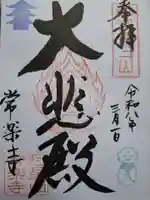 奉拝
令和八年
三月一日
大悲殿
常楽寺